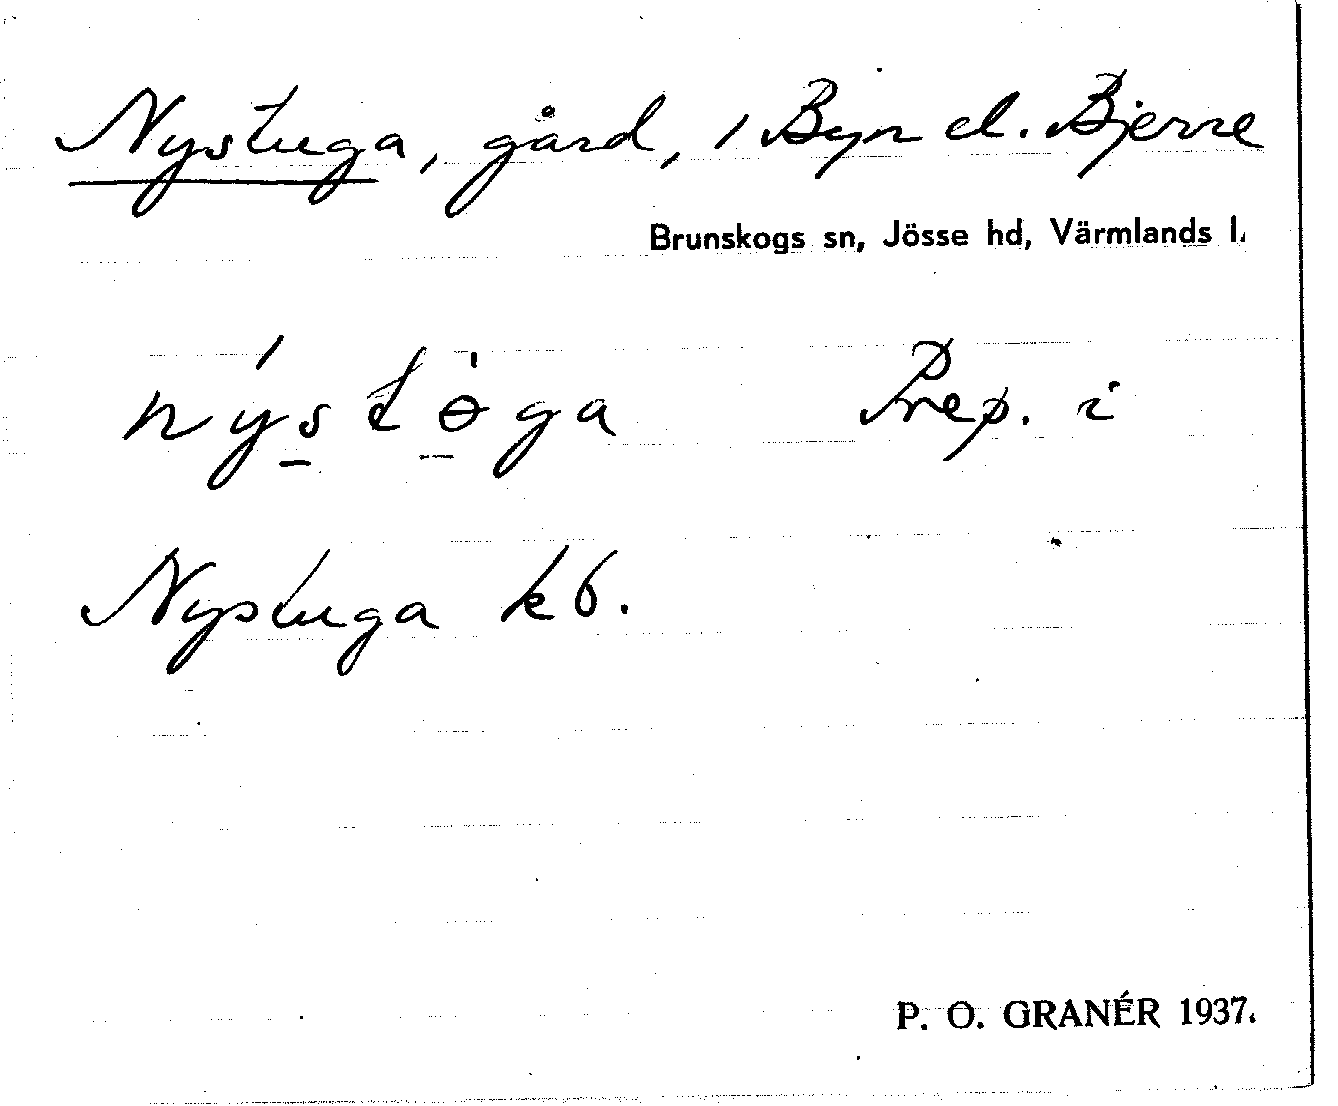 Nystuga, gård, i Byn el. Bjerre
Brunskogs sn, Jösse hd, Värmlands l.
nýstɵ̀ga Prep. i
Nystuga kb.
P. O. GRANÉR 1937.